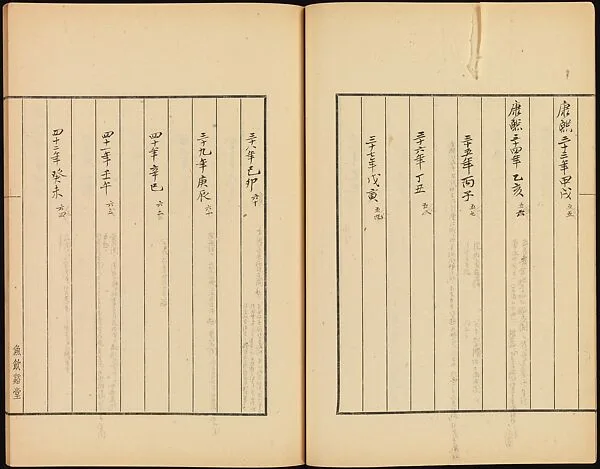 康熙三十三年甲戌 五五
康熙三十四年乙亥 五六
三十五年丙子 五七
三十六年丁丑 五八
三十七年戊寅 五九
三十八年己卯 六十
三十九年庚辰
四十年辛巳 六二
四十一年壬午 六三
四十二年癸未 六四
魚飲谿堂